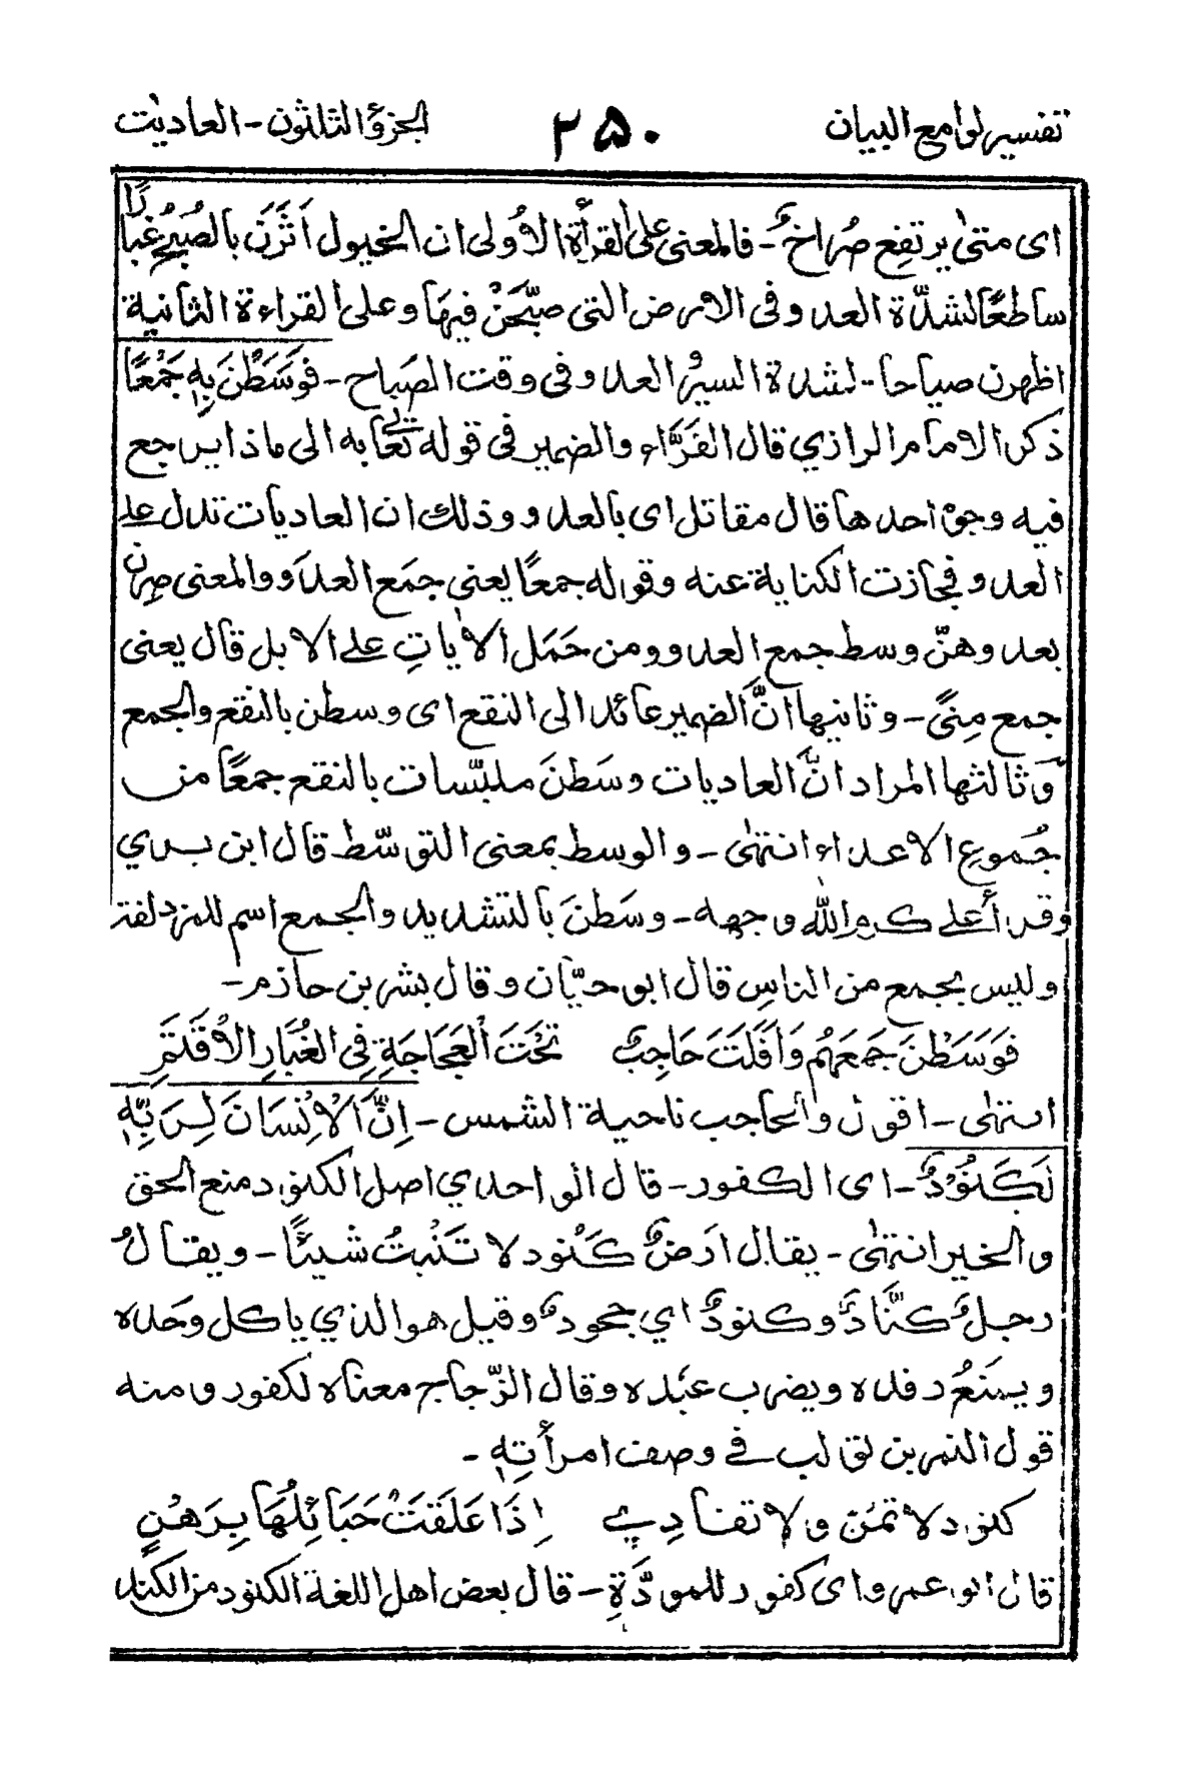 تفسير لوامع البيان
۲۵۰
الجزؤ الثلثون - العاديٰت
اى متىٰ يرتفع صُراخٌ - فالمعنى على القرأة الأُولى ان الخيول اَثَرْنَ بالصُبحِ غُبارًا
ساطعًا لشدّة العدو فى الارض التى صبّحنْ فيهَا وعلى القراءة الثانية
اظهرن صياحا - لشدة السيرُ العدو فى وقت الصَباح - فَوَسَطْنَ بِهٖ جَمْعًا
ذكر الامام الرازي قال الفَرَّاء والضمير فى قوله تعالىٰ به الى ماذا يرجع
فيه وجوهٌ احدها قال مقاتل اى بالعدو وذلك ان العاديات تدل على
العدو فجازت الكناية عنه وقوله جمعًا يعنى جمَع العدَو والمعنى صِرن
بعدوهنّ وسط جمع العدو ومن حَمَل الاٰياتِ على الابل قال يعنى
جمع مِنىً - وثانيها انَّ الضمير عائد الى النقع اى وسطن بالنقع والجمع
وَثالثها المراد انَّ العاديات وسَطنَ ملبّسات بالنقع جمعًا من
جُموعِ الاعداء انتهٰى - والوسط بمعنى التوسّط قال ابن بري
وقرأ على كرم اللّٰه وجهه - وسَطنَ بالتشديد والجمع اسم للمزدلفة
وليس بجمع من الناسِ قال ابو حيّان وقال بشر بن حازم -
فَوَسَطْنَ جَمعَهُم وَاَفلَتَ حَاجِبٌ تَحْتَ الْعَجَاجَةِ فِى الغُبَارِ الْاَقْتَمِ
انتهٰى - اقول والحاجب ناحية الشمس - اِنَّ الْاِنْسَانَ لِرَبِّهٖ
لَكَنُوْدٌ - اى الكفور - قال الواحدي اصل الكنود منع الحق
والخير انتهٰى - يقال ارَضٌ كَنُود لا تَنْبتُ شيئًا - ويقالُ
رجلٌ كنَّادٌ وكنودٌ اي جحودٌ وقيل هو الذي ياكل وحَده
ويمنَعُ رفده ويضرب عبَده وقال الزّجاج معناه لكفور ومنه
قول النمر بن تولب فى وصف امرأتِهٖ -
كنود لا تمَن ولا تفادِي اِذَا عَلَقَتْ حَبَائِلُهَا بِرَهْنٍ
قال ابو عمرو اى كفور للمودَّةِ - قال بعض اهل اللغة الكنود من الكند